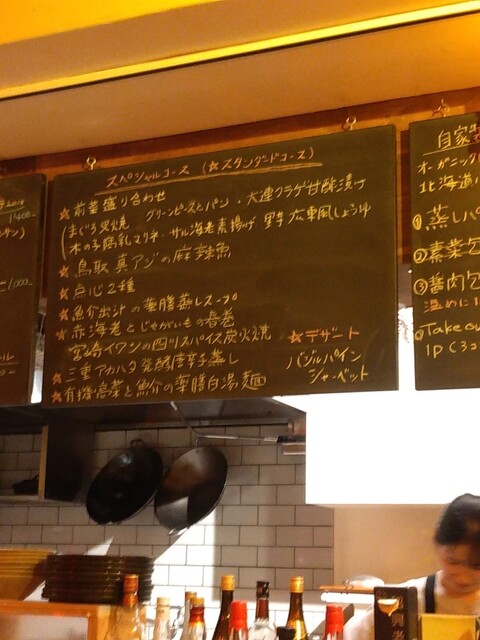 スペシャルコース (☆スタンダードコース)
☆前菜盛り合わせ
まぐろ叉焼 グリーンピースとパン・大連クラゲ甘酢漬け
木の子腐乳マリネ・サル海老素揚げ 広東風しょうゆ
☆鳥取 真アジの麻辣魚
☆点心2種
☆魚介出汁の薬膳蒸しスープ
☆赤海老とじゃがいもの春巻
宮崎イワシの四川スパイス炭火焼
☆三重アカハタ発酵唐辛子蒸し
☆有機高菜と魚介の薬膳白湯麺
☆デザート
バジルパイン
シャーベット
自家製
オーガニック
北海道
①蒸しパ
②素菜包
③醤肉包
温めに1
Takeou
1P(3コ
1400-